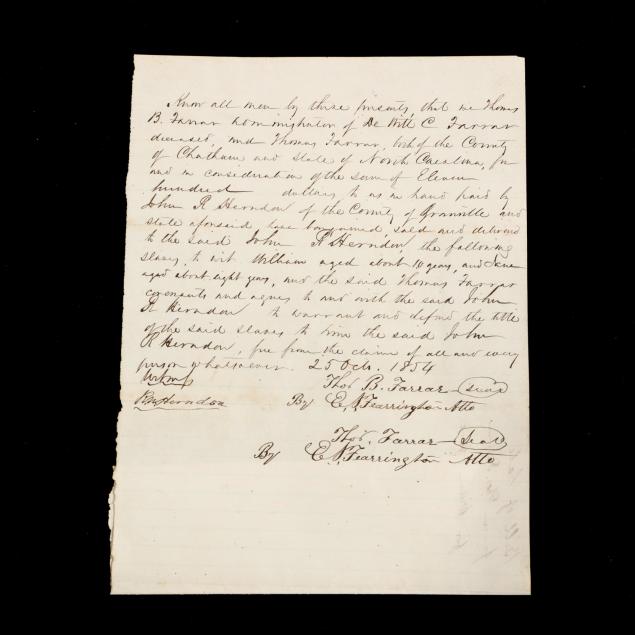 Know all men by these presents, that we Thomas
B. Farrar administrator of De Witt C Farrar
deceased, and Thomas Farrar, both of the County
of Chatham and State of North Carolina, for
and in consideration of the sum of Eleven
hundred dollars to us in hand paid by
John R Herndon of the County of Granville and
state aforesaid have bargained, sold and delivered
to the said John R Herndon, the following
slaves, to wit William aged about 10 years, and
aged about eight years, and the said Thomas Farrar
covenants and agrees to and with the said John
R Herndon to warrant and defend the title
of the said slaves to him the said John
R Herndon, free from the claim of all and every
person whatsoever. 25 Oct. 1854
Thos B. Farrar Seal
Herndon By C. N. Fearrington Atto
Thos. Farrar Seal
By C. N. Fearrington Atto